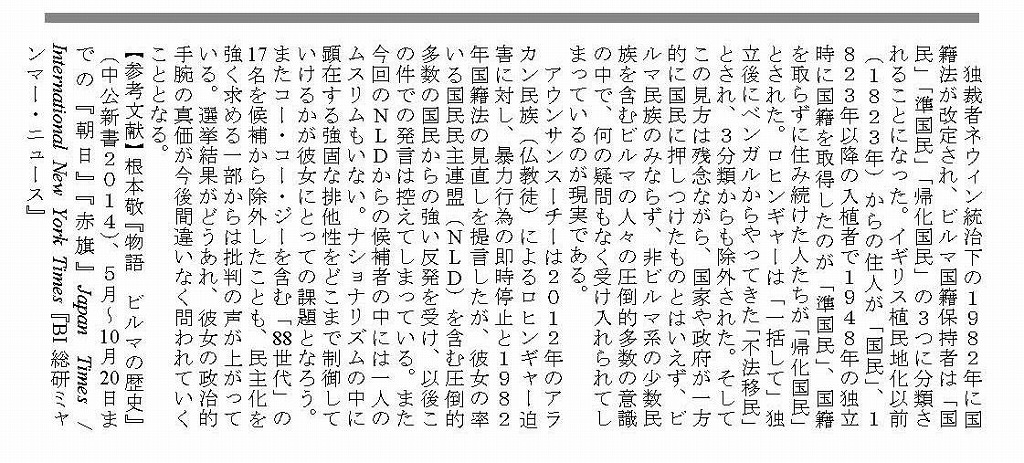 独裁者ネウィン統治下の1982年に国
籍法が改定され、ビルマ国籍保持者は「国
民」「準国民」「帰化国民」の3つに分類さ
れることになった。イギリス植民地化以前
（1823年）からの住人が「国民」、1
823年以降の入植者で1948年の独立
時に国籍を取得したのが「準国民」、国籍
を取らずに住み続けた人たちが「帰化国民」
とされた。ロヒンギャーは「一括して」独
立後にベンガルからやってきた「不法移民」
とされ、3分類からも除外された。そして
この見方は残念ながら、国家や政府が一方
的に国民に押しつけたものとはいえず、ビ
ルマ民族のみならず、非ビルマ系の少数民
族を含むビルマの人々の圧倒的多数の意識
の中で、何の疑問もなく受け入れられてし
まっているのが現実である。
　アウンサンスーチーは2012年のアラ
カン民族（仏教徒）によるロヒンギャー迫
害に対し、暴力行為の即時停止と1982
年国籍法の見直しを提言したが、彼女の率
いる国民民主連盟（NLD）を含む圧倒的
多数の国民からの強い反発を受け、以後こ
の件での発言は控えてしまっている。また
今回のNLDからの候補者の中には一人の
ムスリムもいない。ナショナリズムの中に
顕在する強固な排他性をどこまで制御して
いけるかが彼女にとっての課題となろう。
またコー・コー・ジーを含む「88世代」の
17名を候補から除外したことも、民主化を
強く求める一部からは批判の声が上がって
いる。選挙結果がどうあれ、彼女の政治的
手腕の真価が今後間違いなく問われていく
こととなる。
【参考文献】根本敬『物語　ビルマの歴史』
（中公新書2014）、5月～10月20日ま
での『朝日』『赤旗』Japan Times /
International New York Times『BI総研ミャ
ンマー・ニュース』